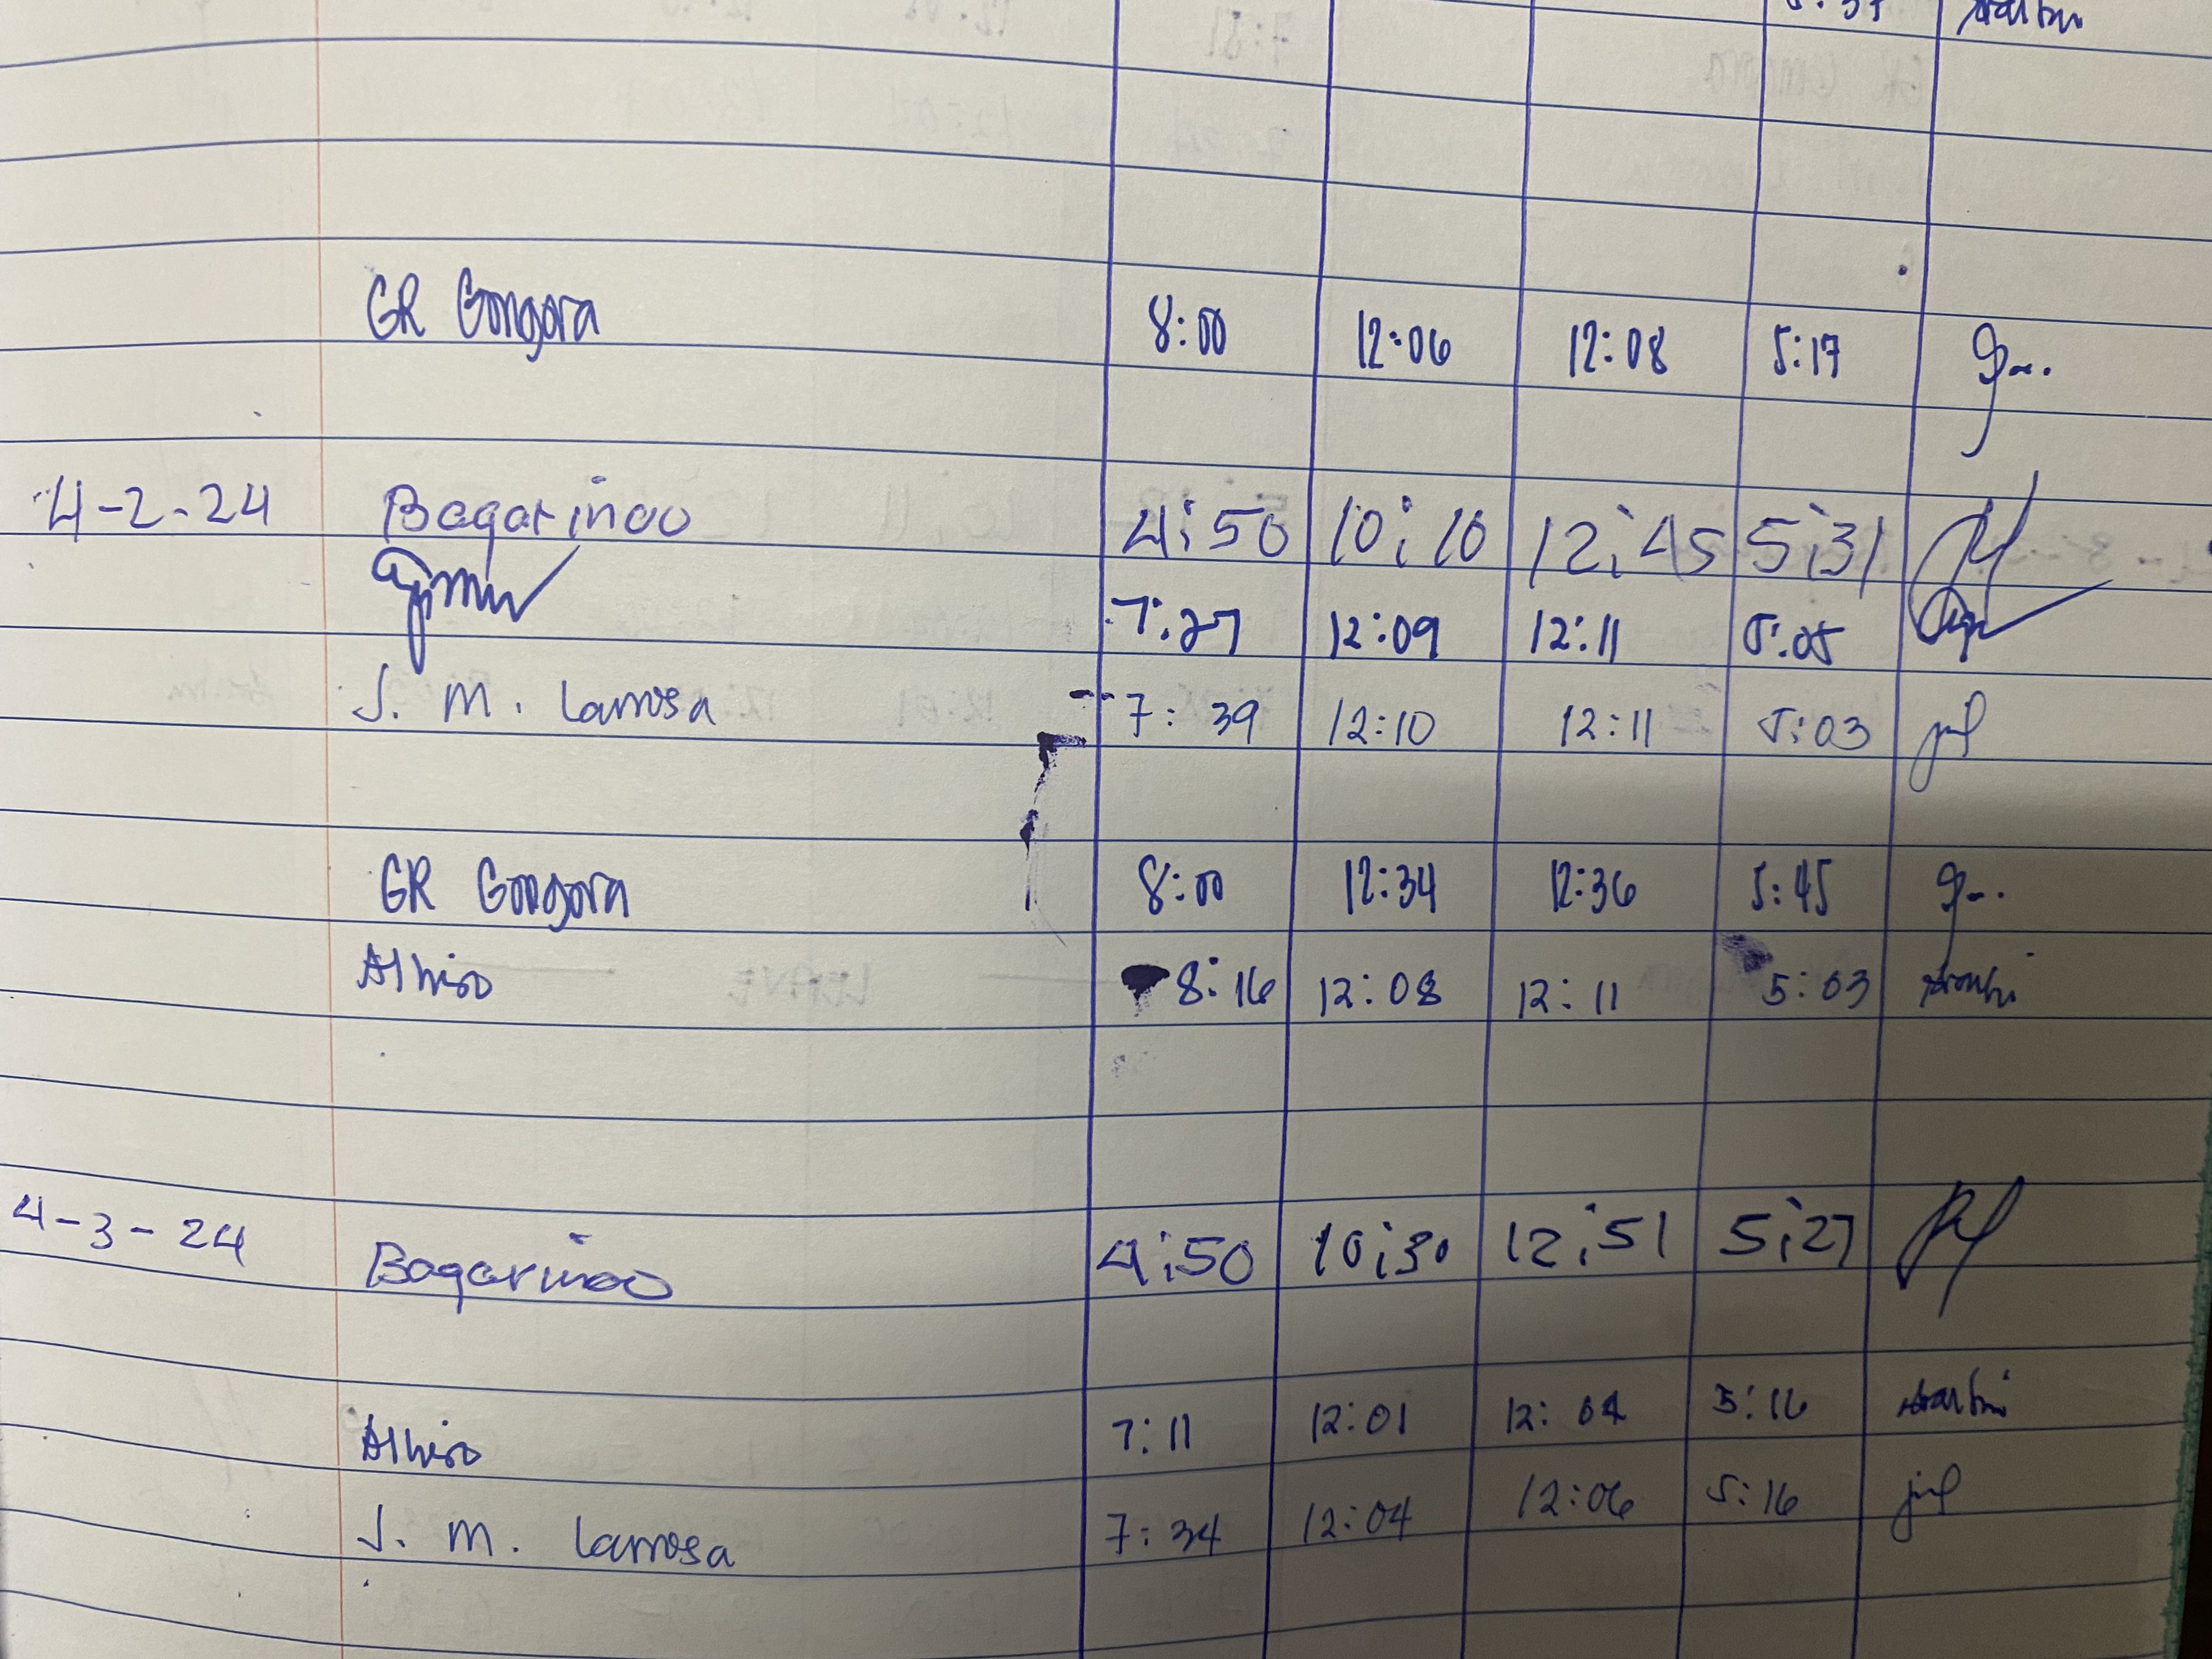 GR Gongora 8:00 12:06 12:08 5:17
4-2-24 Bagarinao 4:50 10:10 12:45 5:31
7:27 12:09 12:11 5:05
J. M. Larrosa 7:39 12:10 12:11 5:03
GR Gongora 8:00 12:34 12:36 5:45
8:16 12:08 12:11 5:03
4-3-24 Bagarinao 4:50 10:30 12:51 5:27
7:11 12:01 12:04 5:16
J. M. Larrosa 7:34 12:04 12:06 5:16